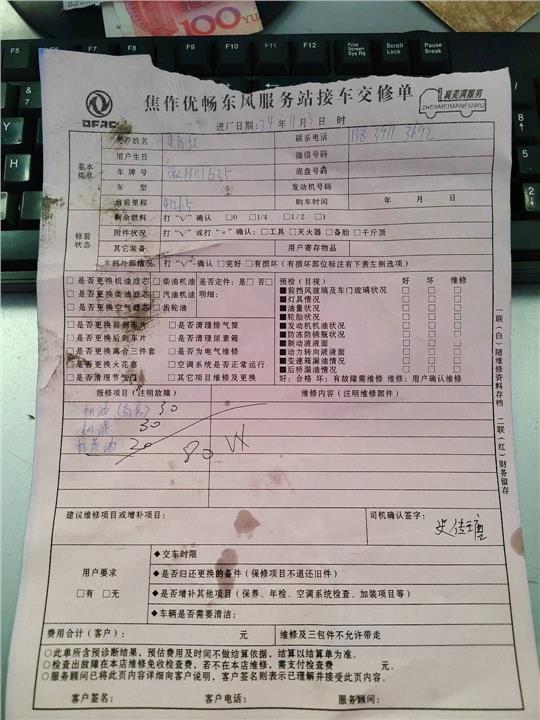 F5 F6 F7 F8 F9 F10 F11 F12 Print Screen Sys Rq Scroll Lock Pause Break
100
真美满服务
ZHENMEIMANFUWU
焦作优畅东风服务站接车交修单
进厂日期: 24 年 11 月 3 日 时
基本信息
用户姓名 联系电话
用户生日 微信号码
车牌号 底盘号码
车型 发动机号码
当前里程 41265 购车时间 年 月 日
修前状态
剩余燃料 打“V”确认 □0 □1/4 □1/2 □1
附件状况 打“V”或打“×”确认: □工具 □灭火器 □备胎 □千斤顶
其它装备 用户寄存物品
车辆外部情况 打“V”确认 □完好 □有损坏(有损坏部位标注有下表左侧选项)
□是否更换机油滤芯 □柴油机油 是否定件: 是□ 否□
□是否更换柴油滤芯 □汽油机油 明细:
□是否更换空气滤芯 □齿轮油
□是否更换前刹车片 □是否清理排气筒
□是否更换后刹车片 □是否清理尿素箱
□是否更换离合三件套 □是否为电气维修
□是否更换火花塞 □空调系统是否正常运行
□是否清理节气门 □其它项目维修及更换
预检(目视) 好 坏 维修
■前挡风玻璃及车门玻璃状况 □ □ □
■灯具情况 □ □ □
■油量状况 □ □ □
■轮胎状况 □ □ □
■发动机机油状况 □ □ □
■防冻防锈瓶状况 □ □ □
■制动液液面 □ □ □
■动力转向液液面 □ □ □
■变速箱漏油情况 □ □ □
■后桥漏油情况 □ □ □
好: 合格 坏: 有故障需维修 维修: 用户确认维修
报修项目(注明故障) 维修内容(注明维修部件)
机油 30
30
20
80
建议维修项目或增补项目: 司机确认签字:
用户要求
□有 □无
◆交车时限
◆是否归还更换的备件(保修项目不退还旧件)
◆是否增补其他项目(保养、年检、空调系统检查、加装项目等)
◆车辆是否需要清洁:
费用合计(客户): 元 维修及三包件不允许带走
○此单所含预诊断结果、预估费用及时间不做结算依据,结算以结算单为准。
○检查出故障在本店维修免收检查费,若不在本店维修,需支付检查费 元。
○服务顾问已将此页内容详细向客户说明,客户签名则表示已理解并接受此页内容。
客户签名: 客户电话: 服务顾问:
一联(白)随维修资料存档 二联(红)财务留存